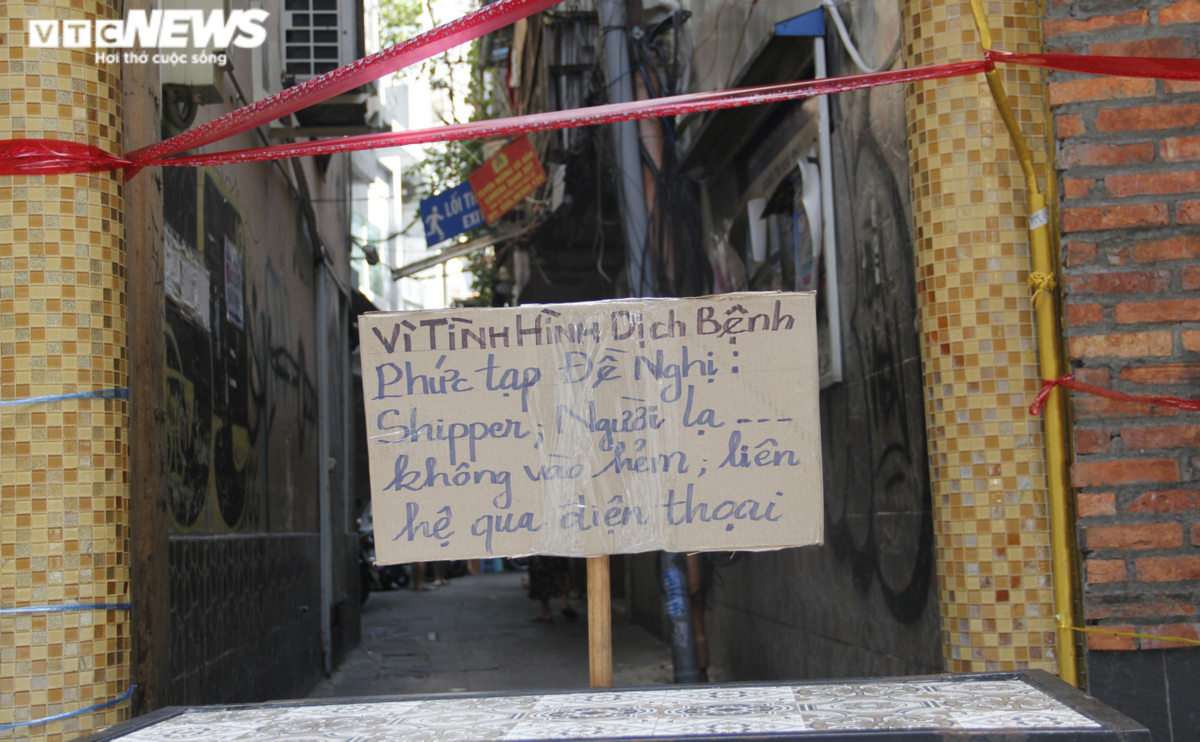 VTC NEWS
Hơi thở cuộc sống
LỐI TH
EXI
Vì TÌNH HÌNH Dịch Bệnh
Phức tạp Đề Nghị :
Shipper, Người lạ ---
không vào hẻm, liên
hệ qua điện thoại